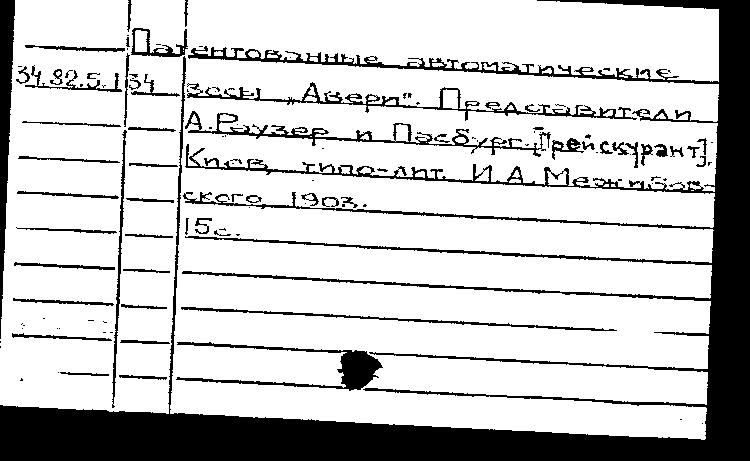 Патентованные автоматические
34.82.5.134 весы „Авери". Представители
А. Раузер и Пасбург. [Прейскурант].
Киев, типо-лит. И.А. Межибов-
ского, 1903.
15с.